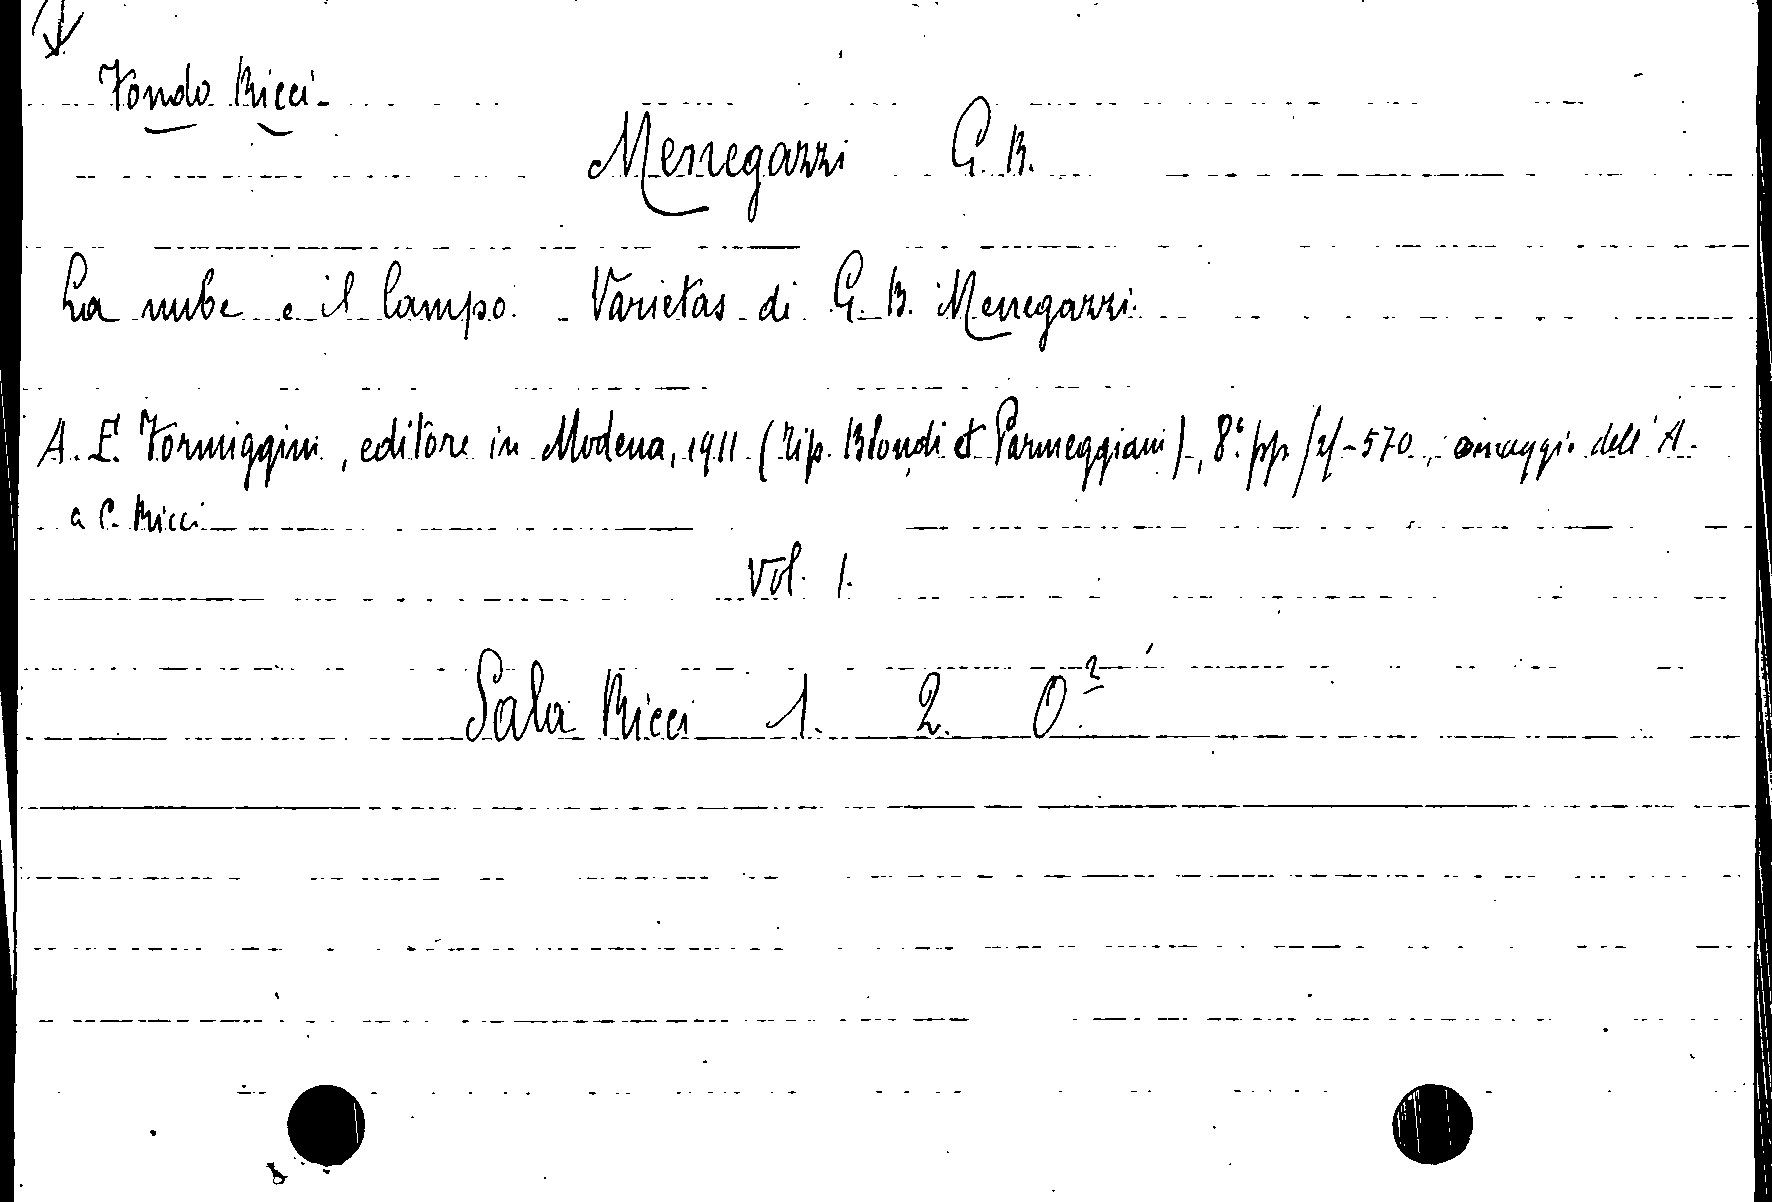 Fondo Ricci-
Menegazzi G. B.
La nube e il lampo. - Varietas di G. B. Menegazzi.
A. F. Formiggini, editore in Modena, 1911 (Tip. Blondi et Parmeggiani), 8° pp /2/-570, omaggio dell'A.
a C. Ricci
Vol. 1.
Sala Ricci 1. 2. O.²